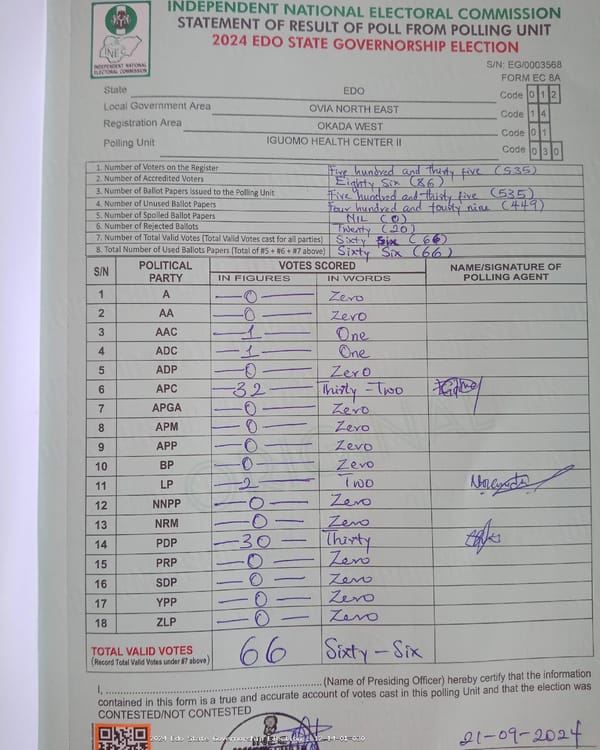 INDEPENDENT NATIONAL ELECTORAL COMMISSION
STATEMENT OF RESULT OF POLL FROM POLLING UNIT
2024 EDO STATE GOVERNORSHIP ELECTION
INEC
INDEPENDENT NATIONAL
ELECTORAL COMMISSION
S/N: EG/0003568
FORM EC 8A
State EDO Code 0 1 2
Local Government Area OVIA NORTH EAST Code 1 4
Registration Area OKADA WEST Code 0 1
Polling Unit IGUOMO HEALTH CENTER II Code 0 3 0
1. Number of Voters on the Register Five hundred and thirty five (535)
2. Number of Accredited Voters Eighty Six (86)
3. Number of Ballot Papers Issued to the Polling Unit Five hundred and thirty five (535)
4. Number of Unused Ballot Papers Four hundred and fourty nine (449)
5. Number of Spoiled Ballot Papers NIL (0)
6. Number of Rejected Ballots Twenty (20)
7. Number of Total Valid Votes (Total Valid Votes cast for all parties) Sixty Six (66)
8. Total Number of Used Ballots Papers (Total of #5 + #6 + #7 above) Sixty Six (66)
S/N POLITICAL PARTY VOTES SCORED NAME/SIGNATURE OF POLLING AGENT
IN FIGURES IN WORDS
1 A 0 Zero
2 AA 0 Zero
3 AAC 1 One
4 ADC 1 One
5 ADP 0 Zero
6 APC 32 Thirty-Two
7 APGA 0 Zero
8 APM 0 Zero
9 APP 0 Zero
10 BP 0 Zero
11 LP 2 Two
12 NNPP 0 Zero
13 NRM 0 Zero
14 PDP 30 Thirty
15 PRP 0 Zero
16 SDP 0 Zero
17 YPP 0 Zero
18 ZLP 0 Zero
TOTAL VALID VOTES 66 Sixty-Six
(Record Total Valid Votes under #7 above)
I, (Name of Presiding Officer) hereby certify that the information
contained in this form is a true and accurate account of votes cast in this polling Unit and that the election was
CONTESTED/NOT CONTESTED
2024 Edo State Governorship Election
21-09-2024
ORIGINAL